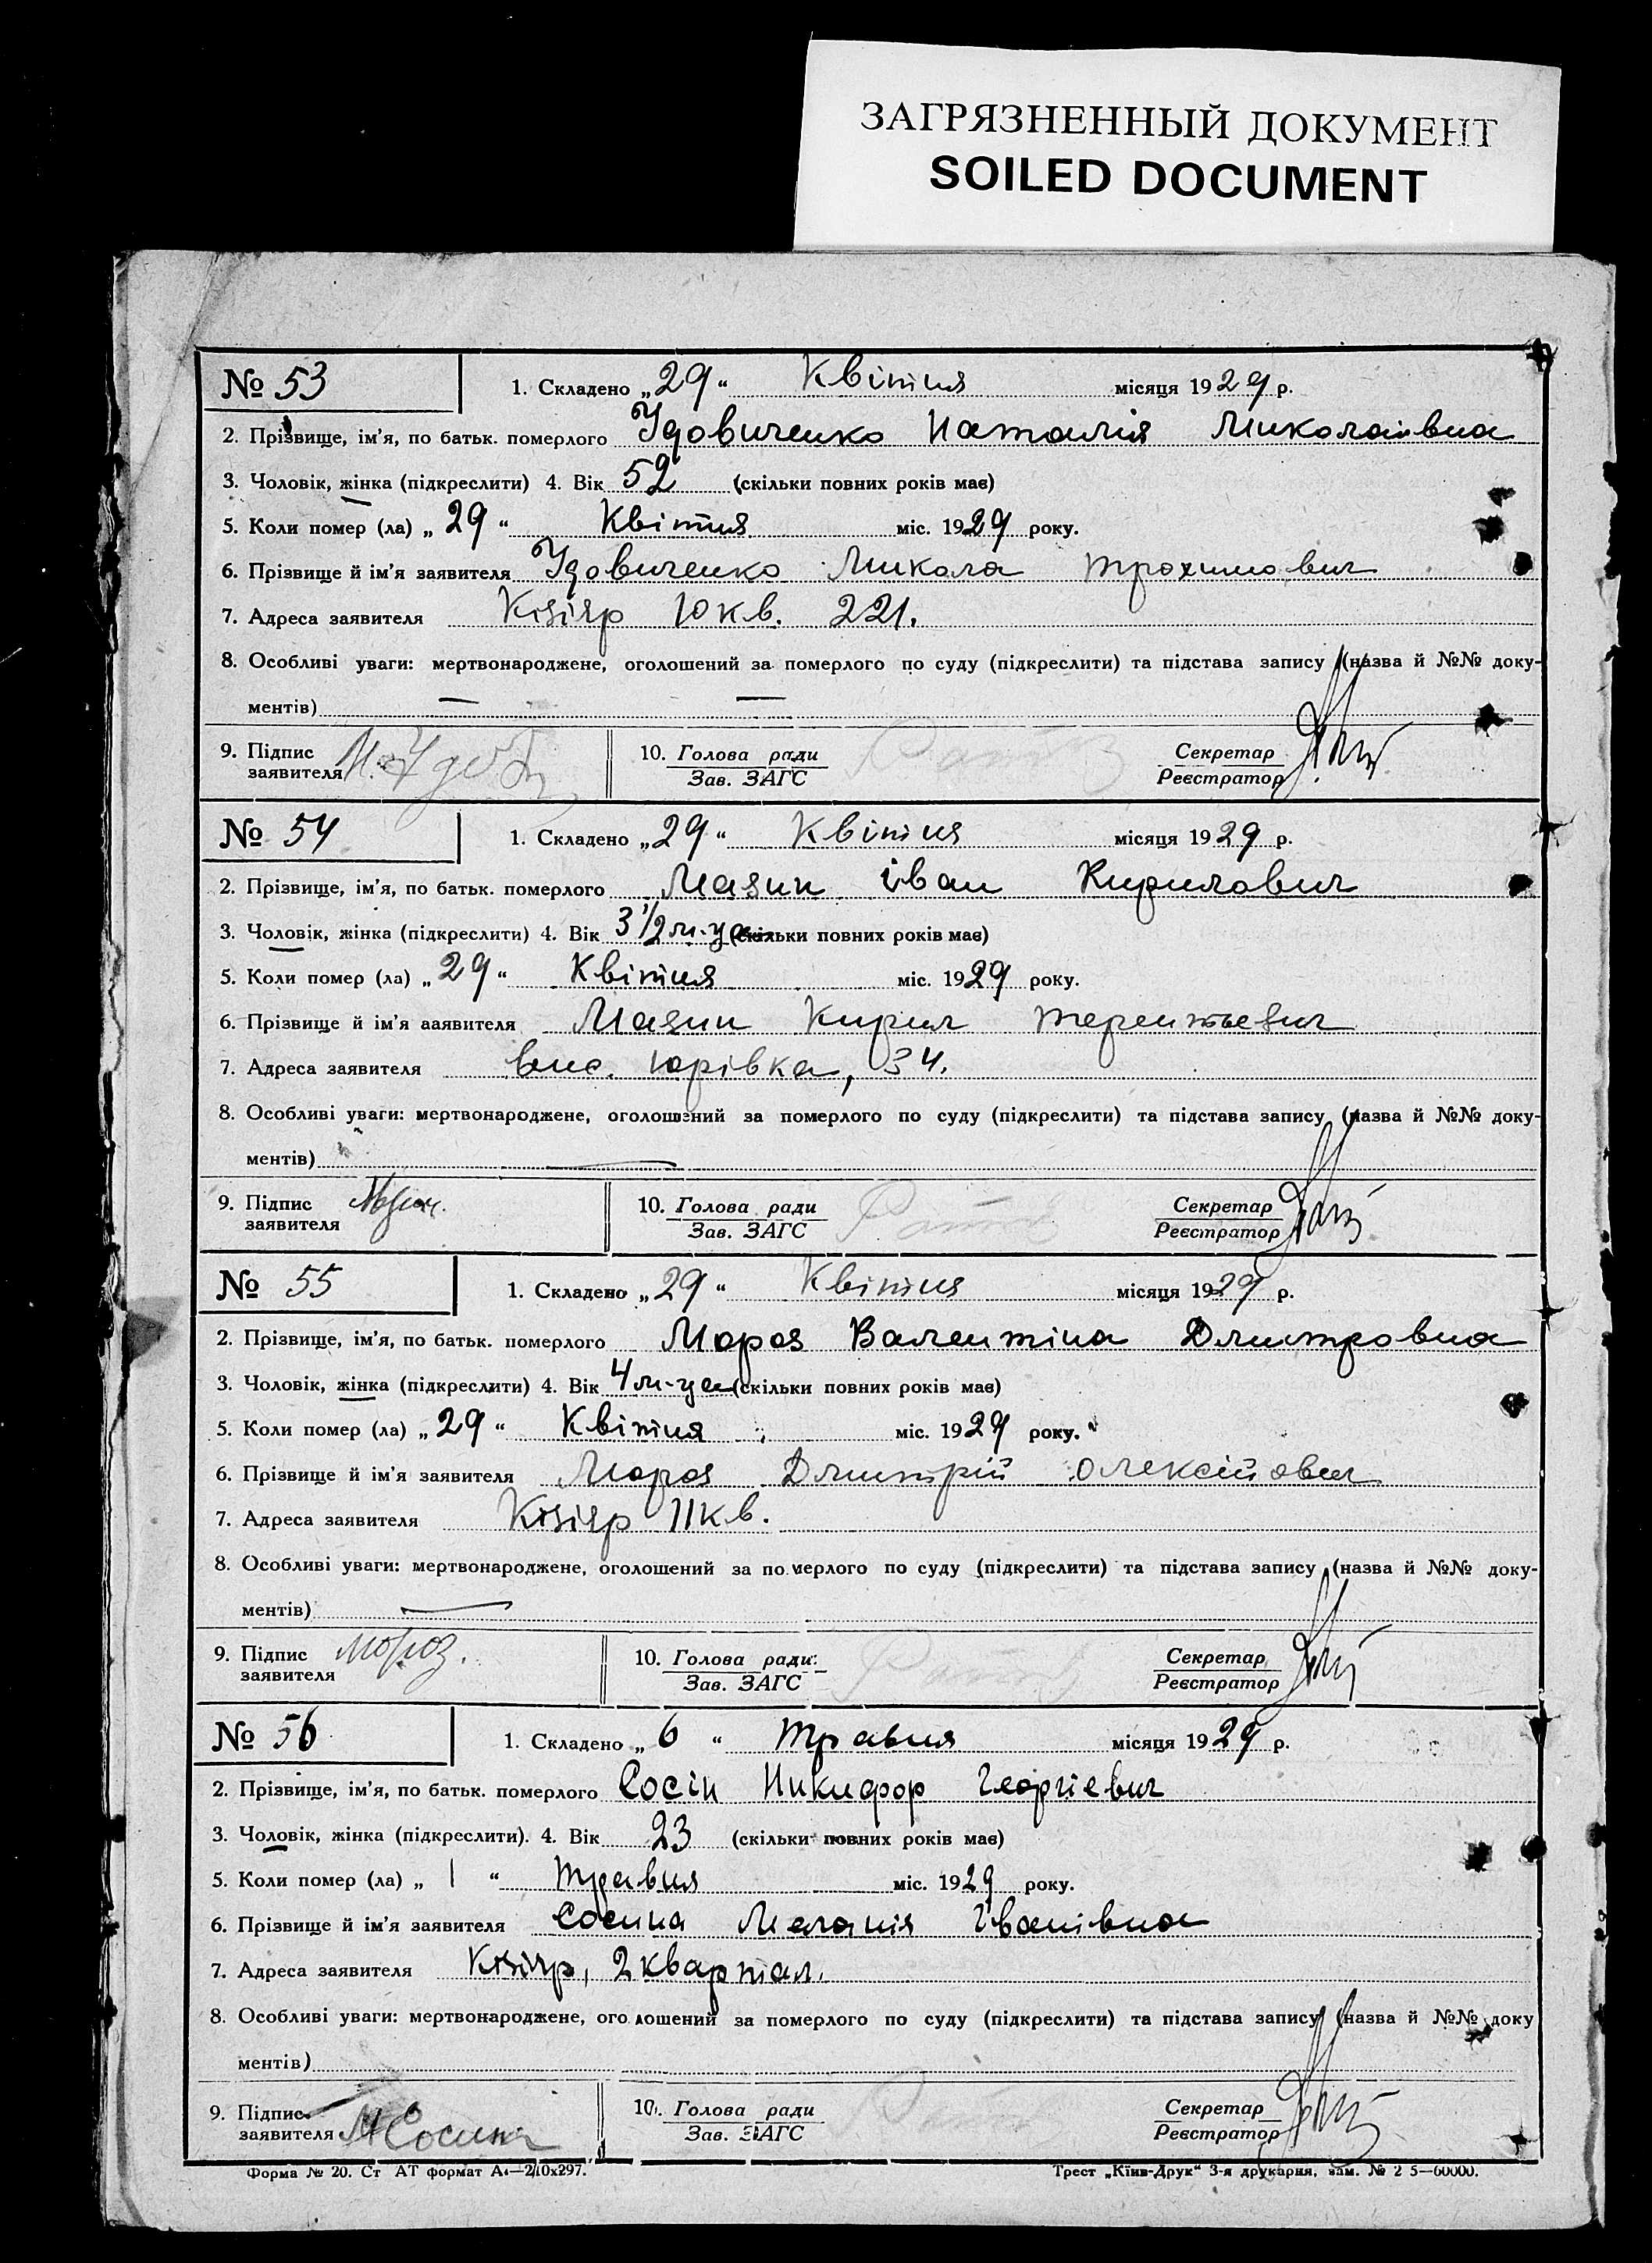 ЗАГРЯЗНЕННЫЙ ДОКУМЕНТ
SOILED DOCUMENT
№ 53 1. Складено „29“ Квітня місяця 1929 р.
2. Прізвище, ім'я, по батьк. померлого Удовиченко Наталія Миколаївна
3. Чоловік, жінка (підкреслити) 4. Вік 52 (скільки повних років має)
5. Коли помер (ла) „29“ Квітня міс. 1929 року.
6. Прізвище й ім'я заявителя Удовиченко Микола Трохимович
7. Адреса заявителя 10 кв. 221.
8. Особливі уваги: мертвонароджене, оголошений за померлого по суду (підкреслити) та підстава запису (назва й №№ доку-
ментів)
9. Підпис 10. Голова ради Секретар
заявителя Зав. ЗАГС Реєстратор
№ 54 1. Складено „29“ Квітня місяця 1929 р.
2. Прізвище, ім'я, по батьк. померлого Мазин Іван Кирилович
3. Чоловік, жінка (підкреслити) 4. Вік 3 1/2 м-ця (скільки повних років має)
5. Коли помер (ла) „29“ Квітня міс. 1929 року.
6. Прізвище й ім'я заявителя Мазин Кирил Терентьевич
7. Адреса заявителя вис. Юрівка, 34.
8. Особливі уваги: мертвонароджене, оголошений за померлого по суду (підкреслити) та підстава запису (назва й №№ доку-
ментів)
9. Підпис 10. Голова ради Секретар
заявителя Зав. ЗАГС Реєстратор
№ 55 1. Складено „29“ Квітня місяця 1929 р.
2. Прізвище, ім'я, по батьк. померлого Мороз Валентіна Дмитровна
3. Чоловік, жінка (підкреслити) 4. Вік 4 м-ця (скільки повних років має)
5. Коли помер (ла) „29“ Квітня міс. 1929 року.
6. Прізвище й ім'я заявителя Мороз Дмитрій Олексійович
7. Адреса заявителя 11 кв.
8. Особливі уваги: мертвонароджене, оголошений за померлого по суду (підкреслити) та підстава запису (назва й №№ доку-
ментів)
9. Підпис Мороз. 10. Голова ради Секретар
заявителя Зав. ЗАГС Реєстратор
№ 56 1. Складено „6“ Травня місяця 1929 р.
2. Прізвище, ім'я, по батьк. померлого Сосін Никифор Георгіевич
3. Чоловік, жінка (підкреслити). 4. Вік 23 (скільки повних років має)
5. Коли помер (ла) „1“ Травня міс. 1929 року.
6. Прізвище й ім'я заявителя Сосина Меланія Іванівна
7. Адреса заявителя 2 квартал.
8. Особливі уваги: мертвонароджене, оголошений за померлого по суду (підкреслити) та підстава запису (назва й №№ доку
ментів)
9. Підпис 10. Голова ради Секретар
заявителя М Сосина Зав. ЗАГС Реєстратор
Форма № 20. Ст АТ формат А4—210х297. Трест „Київ-Друк“ 3-я друкарня, зам. № 2 5—60000.